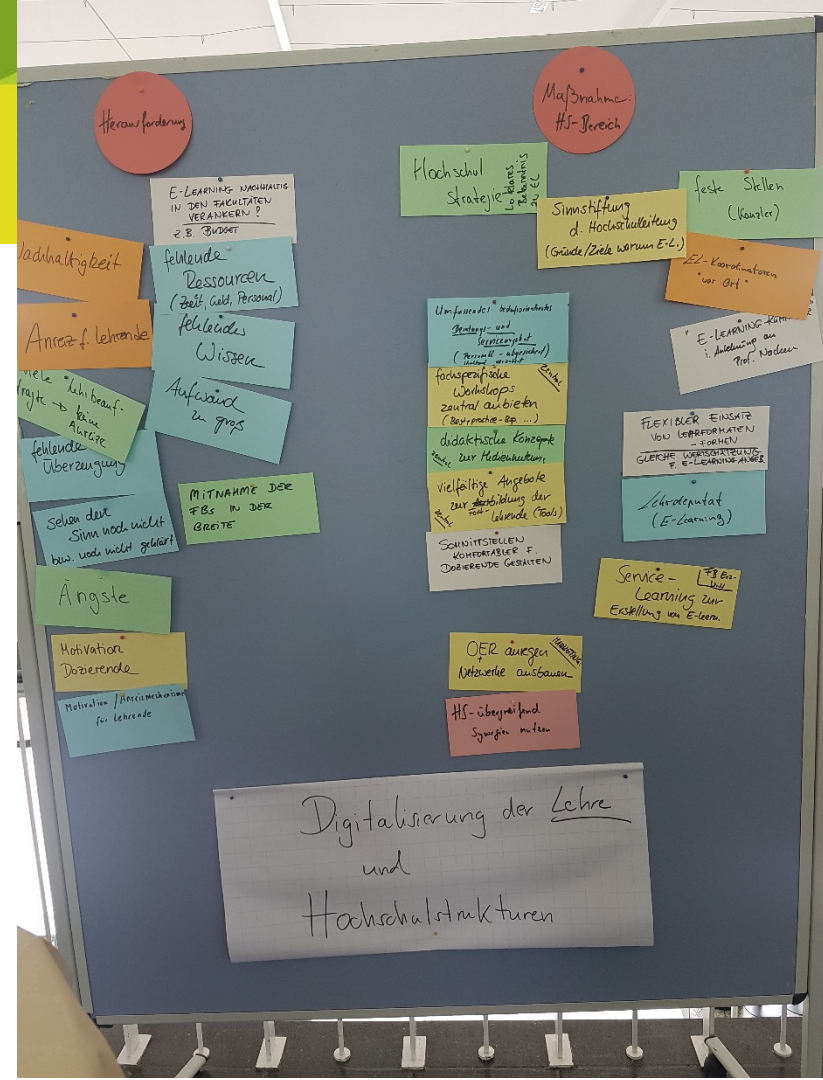 Herausforderung
E-LEARNING NACHHALTIG
IN DEN FAKULTÄTEN
VERANKERN?
z.B BUDGET
Nachhaltigkeit
fehlende
Ressourcen
(Zeit, Geld, Personal)
Anreiz f. Lehrende
fehlendes
Wissen
viele Lehrbeauf-
tragte → keine
Anreize
Aufwand
zu groß
fehlende
Überzeugung
MITNAHME DER
FBs IN DER
BREITE
sehen den
Sinn noch nicht
bzw. noch nicht geklärt
Ängste
Motivation
Dozierende
Motivation / Anreizmechanismen
für Lehrende
Maßnahme:
HS-Bereich
Hochschul
Strategie
klares
Bekenntnis
zu EL
Sinnstiftung
d. Hochschulleitung
(Gründe/Ziele warum E-L.)
feste Stellen
(Kanzler)
EL-Koordinatoren
"vor Ort"
E-LEARNING
i. Anlehnung an
Prof. Nacken
Umfassendes bedarfsorientiertes
Beratungs- und
Serviceangebot
(Personell - abgesichert)
fachspezifische
Workshops
zentral anbieten
(Best-practice-Bsp. ...)
zentral
didaktische Konzepte
zur Mediennutzung
vielfältige Angebote
zur Fortbildung der
Lehrende (Tools)
SCHNITTSTELLEN
KOMFORTABLER F.
DOZIERENDE GESTALTEN
FLEXIBLER EINSATZ
VON LEHRFORMATEN
-FORMEN
GLEICHE WERTSCHÄTZUNG
F. E-LEARNING-ANGEB.
Lehrdeputat
(E-Learning)
Service-
Learning zur
Erstellung von E-Learn.
OER anregen
+
Netzwerke ausbauen
MARKETING
HS-übergreifend
Synergien nutzen
Digitalisierung der Lehre
und
Hochschulstrukturen